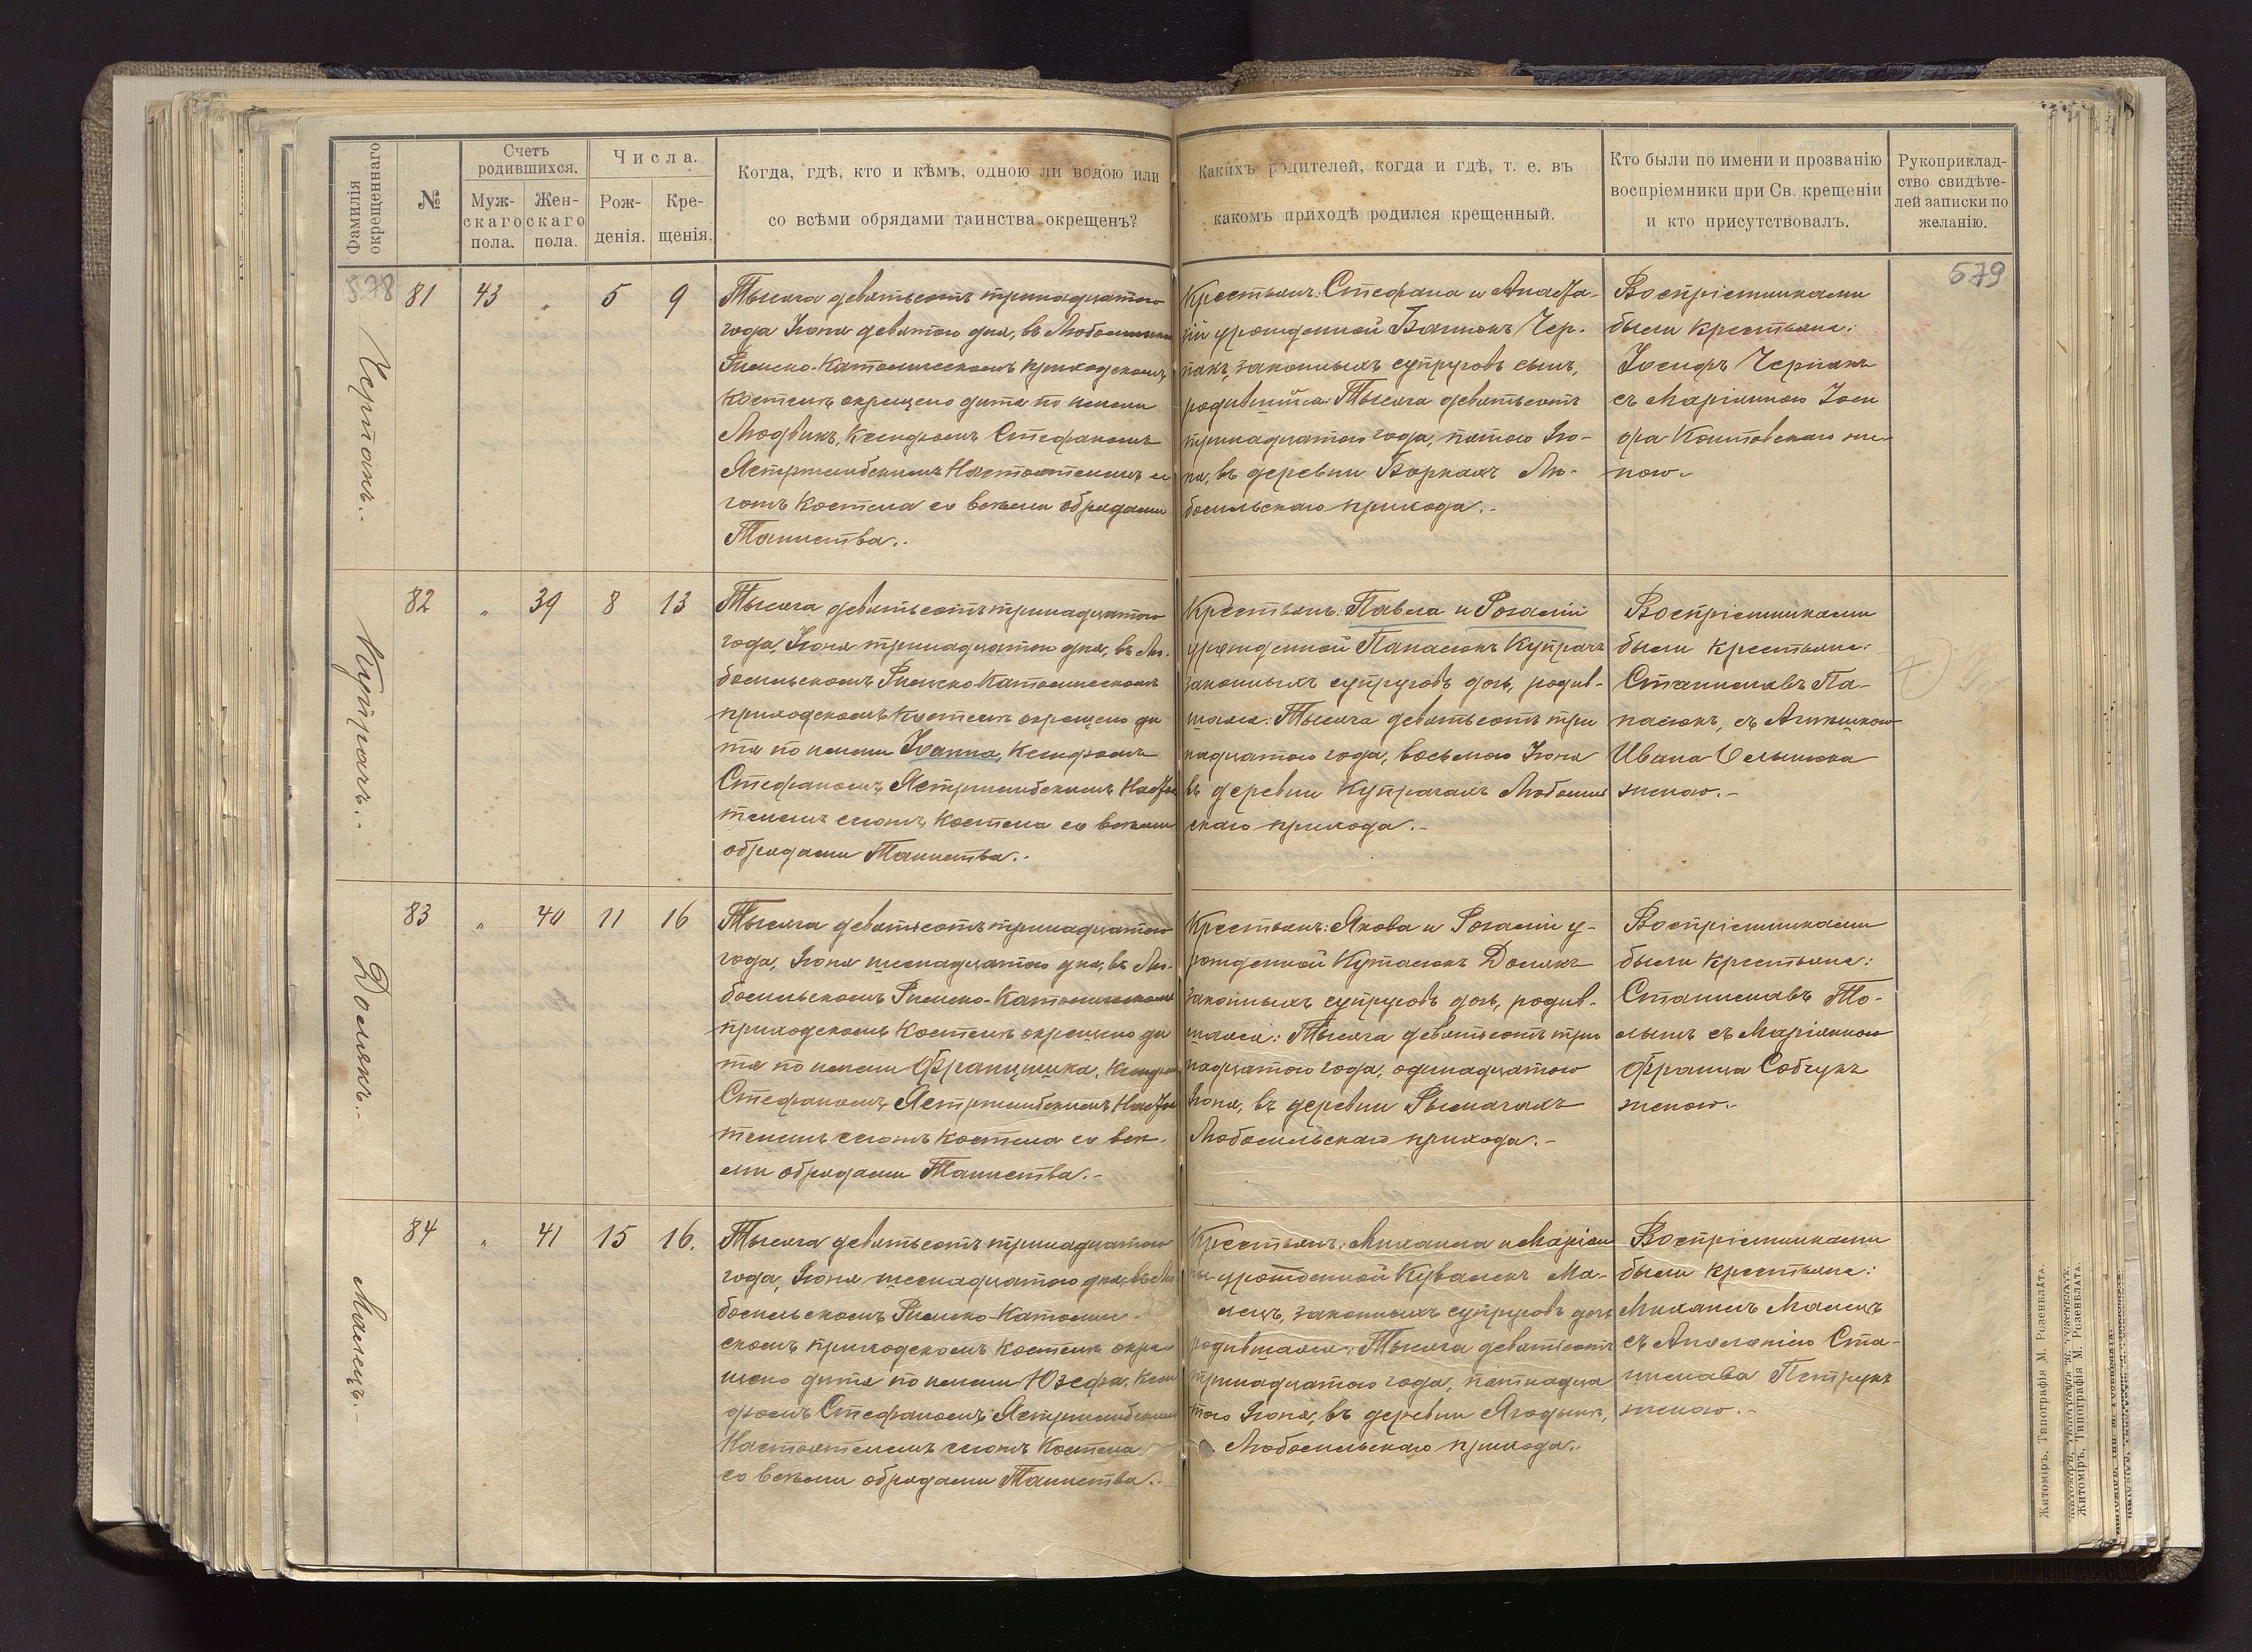 Фамилія окрещеннаго
№
Счетъ родившихся.
Мужскаго пола.
Женскаго пола.
Числа.
Рожденія.
Крещенія.
Когда, гдѣ, кто и кѣмъ, одною ли водою или
со всѣми обрядами таинства окрещенъ?
Какихъ родителей, когда и гдѣ, т. е. въ
какомъ приходѣ родился крещенный.
Кто были по имени и прозванію
воспріемники при Св. крещеніи
и кто присутствовалъ.
Рукоприклад-
ство свидѣте-
лей записки по
желанію.
578
579
Черпакъ.
81 43 „ 5 9
Тысяча девятьсотъ тринадцатаго
года Іюня девятаго дня, въ
Римско-Католическомъ приходскомъ
Костелѣ окрещено дитя по имени
Людвикъ, Ксендзомъ Стефаномъ
Ястржембскимъ Настоятелемъ се
готъ Костела со всѣми обрядами
Таинства.
Крестьянъ: Стефана и
урожденной Чер-
пакъ, законныхъ супруговъ сынъ,
родившійся: Тысяча девятьсотъ
тринадцатаго года, пятаго Ію-
ня, въ деревни Боркахъ Лю-
бомльскаго прихода.
Воспріемниками
были крестьяне:
Іосифъ Черпакъ
съ Маріянною Іоси
фа женою.
Купрачъ.
82 „ 39 8 13
Тысяча девятьсотъ тринадцатаго
года, Іюня тринадцатаго дня, въ Лю-
бомльскомъ Римско Католическомъ
приходскомъ Костелѣ окрещено ди
тя по имени Іоанна, Ксендзомъ
Стефаномъ Ястржембскимъ Настоя
телемъ сеготъ Костела со всѣми
обрядами Таинства.
Крестьянъ: Павла и Розаліи
урожденной Панасюкъ Купрачъ
законныхъ супруговъ дочь, родив-
шаяся: Тысяча девятьсотъ три
надцатаго года, восьмаго Іюня
въ деревни Купрачахъ Любомль
скаго прихода.-
Воспріемниками
были крестьяне:
Станиславъ Па-
насюкъ, съ
Ивана
женою.-
Долякъ.
83 „ 40 11 16
Тысяча девятьсотъ тринадцатаго
года, Іюня шеснадцатаго дня, въ Лю-
бомльскомъ Римско-Католическомъ
приходскомъ Костелѣ окрещено ди
тя по имени Францишка, Ксендзомъ
Стефаномъ Ястржембскимъ Настоя
телемъ сеготъ Костела со всѣ-
ми обрядами Таинства.-
Крестьянъ: Якова и Розаліи у-
рожденной Долякъ
законныхъ супруговъ дочь, родив-
шаяся: Тысяча девятьсотъ три
надцатаго года, одинадцатаго
Іюня, въ деревни Рымачахъ
Любомльскаго прихода.-
Воспріемниками
были крестьяне:
Станиславъ
съ Маріянною
Франца Собчукъ
женою.-
Малецъ.-
84 „ 41 15 16.
Тысяча девятьсотъ тринадцатаго
года, Іюня шеснадцатаго дня, въ Лю
бомльскомъ Римско-Католиче-
скомъ приходскомъ Костелѣ окре
щено дитя по имени Юзефа, Ксен
дзомъ Стефаномъ Ястржембскимъ
Настоятелемъ сеготъ Костела
со всѣми обрядами Таинства.
Крестьянъ: Михаила и Маріян
ны урожденной Ма-
лецъ, законныхъ супруговъ дочь
родившаяся: Тысяча девятьсотъ
тринадцатаго года, пятнадца
таго Іюня, въ деревни Ягодынѣ,
Любомльскаго прихода.
Воспріемниками
были крестьяне:
Михаилъ Малецъ
съ Аполоніею Ста-
нислава Петрукъ
женою.-
Житоміръ, Типографія М. Розенблата.
Житоміръ, Типографія М. Розенблата.